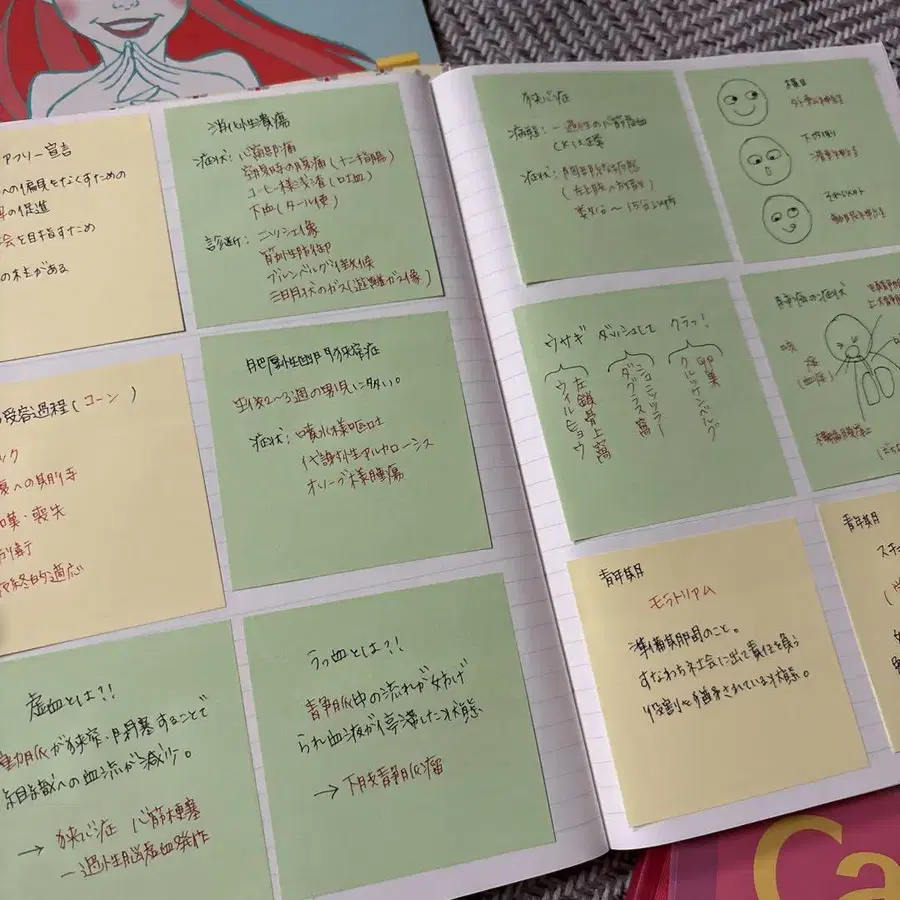 アフリー宣言
への偏見をなくすための
の促進
会を目指すため
がある
消化性潰瘍
症状：心窩部痛
空腹時の腹痛（十二指腸）
コーヒー様残渣（吐血）
下血（タール便）
診断：ニッシェ像
筋性防御
ブルンベルグ徴候
三日月状のガス（遊離ガス像）
受容過程（コーン）
ック
復への期待
悲嘆・喪失
防衛
最終的適応
肥厚性幽門狭窄症
生後2～3週の男児に多い。
症状：噴水様嘔吐
代謝性アルカローシス
オリーブ様腫瘤
虚血とは？！
動脈が狭窄・閉塞することで
組織への血流が減少。
→ 狭心症 心筋梗塞
一過性脳虚血発作
うっ血とは？！
静脈中の流れが妨げ
られ血液が停滞した状態
→ 下肢静脈瘤
狭心症
病態：一過性の心筋虚血
CKは正常
症状：胸部
（左上肢へ放散）
数分～15分以内
横目
外
下方
それ以外
ウサギ ダッシュして クラっ！
ウィルヒョウ
左鎖骨上窩
ダグラス窩
シュニッツラー
クルッケンベルグ
卵巣
の症状
咳
青年期
モラトリアム
準備期間のこと。
すなわち社会に出て責任を負う
役割が猶予されている状態。
青年期
スチ
Ca